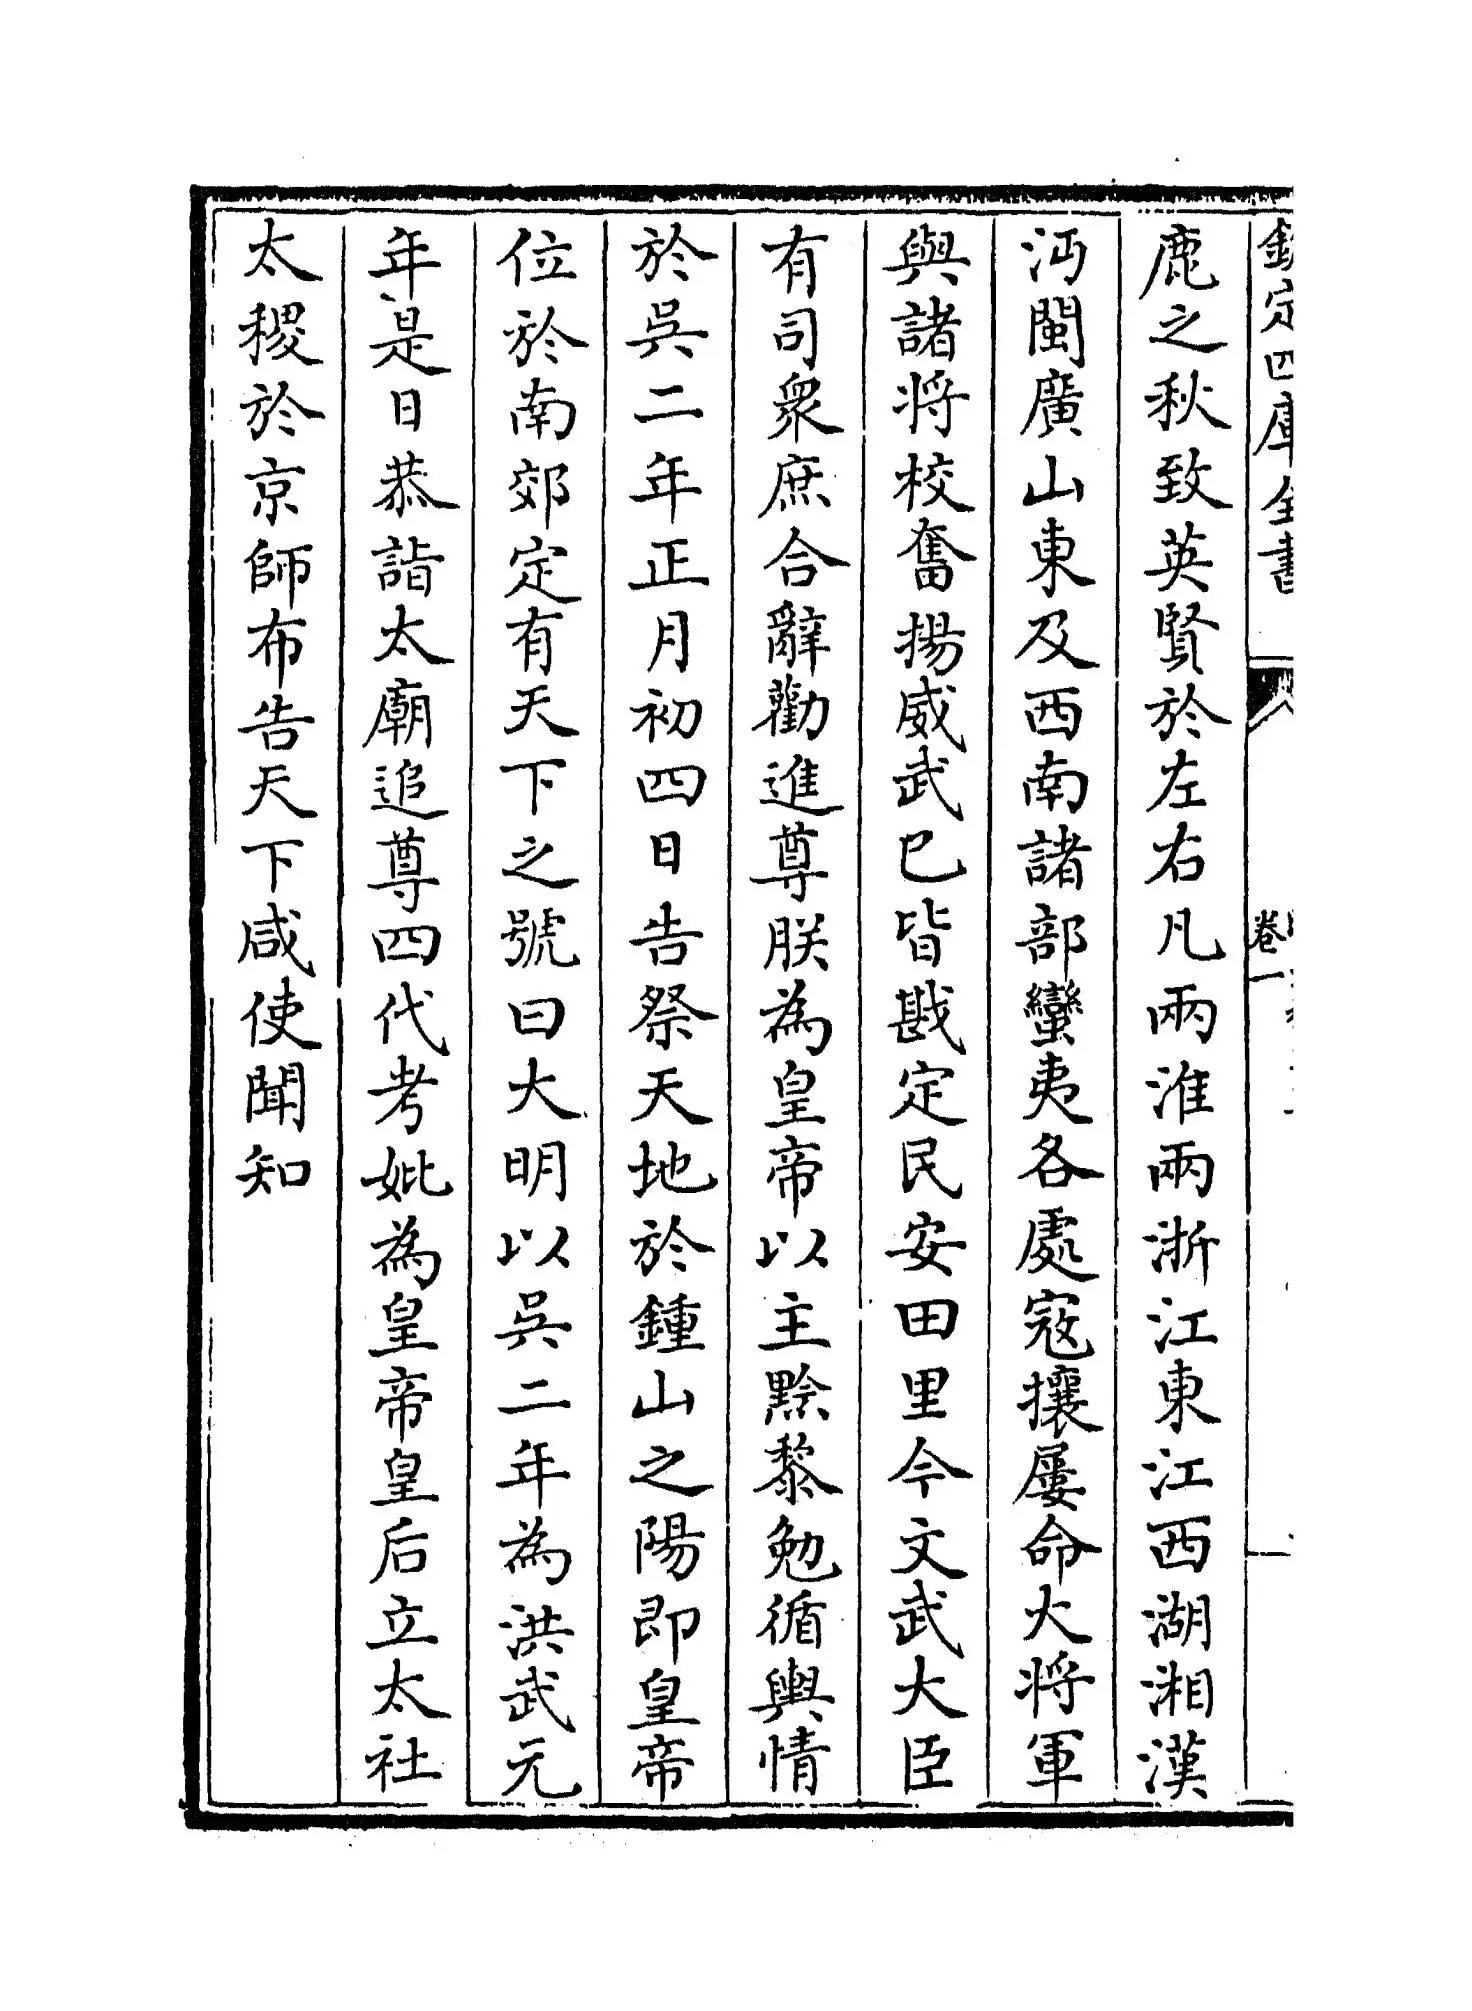 欽定四庫全書
卷一
鹿之秋致英賢於左右凡兩淮兩浙江東江西湖湘漢
沔閩廣山東及西南諸部蠻夷各處寇攘屢命大將軍
與諸將校奮揚威武已皆戡定民安田里今文武大臣
有司衆庶合辭勸進尊朕為皇帝以主黔黎勉循輿情
於吳二年正月初四日告祭天地於鍾山之陽即皇帝
位於南郊定有天下之號曰大明以吳二年為洪武元
年是日恭詣太廟追尊四代考妣為皇帝皇后立太社
太稷於京師布告天下咸使聞知